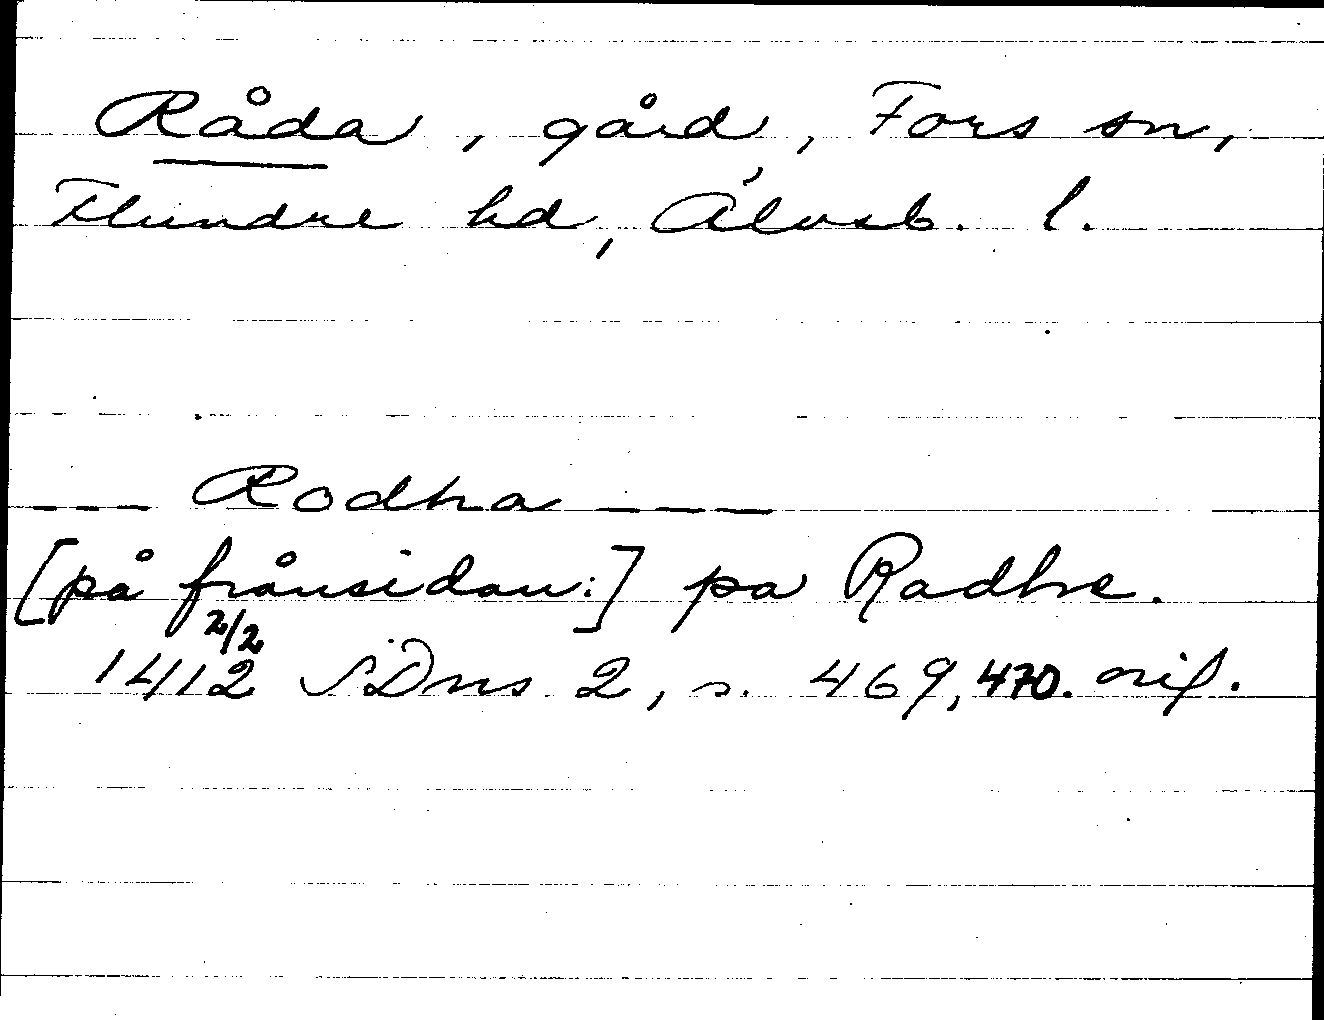 Råda, gård, Fors sn,
Flundre hd, Älvsb. l.
--- Rodha ---
[på frånsidan:] pa Radhe.
1412 2/2 SDns 2, s. 469, 470. orig.